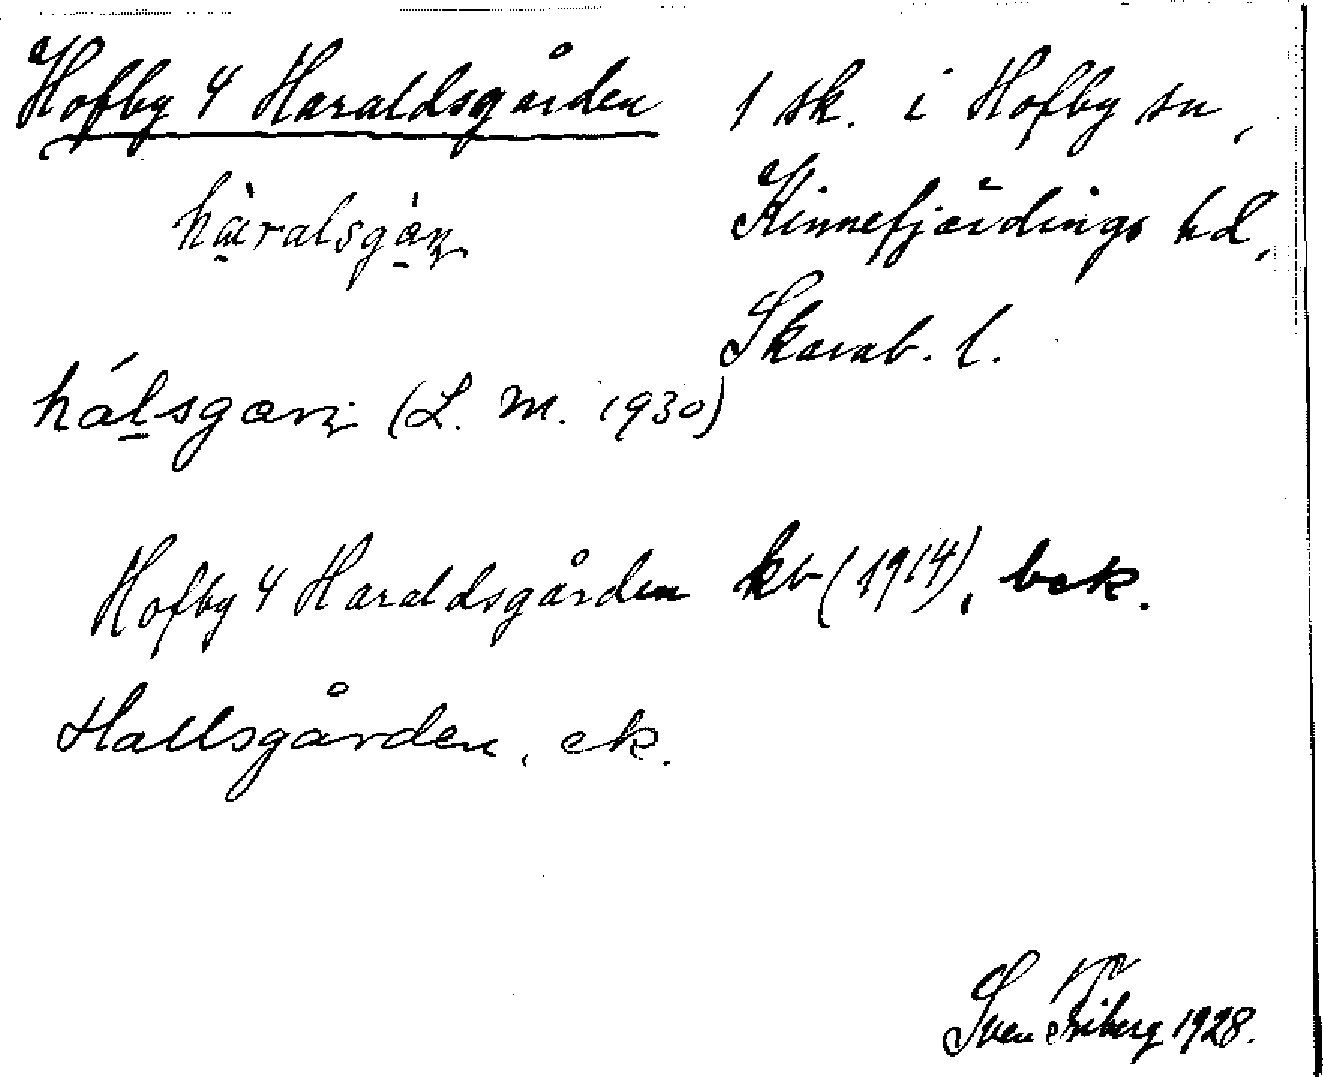 Hofby 4 Haraldsgården 1 sk. i Hofby sn,
Kinnefjärdings hd,
Skarab. l.
(L. M. 1930)
Hofby 4 Haraldsgården kb (1914), bok.
Hallsgården, ek.
Sven Friberg 1928.